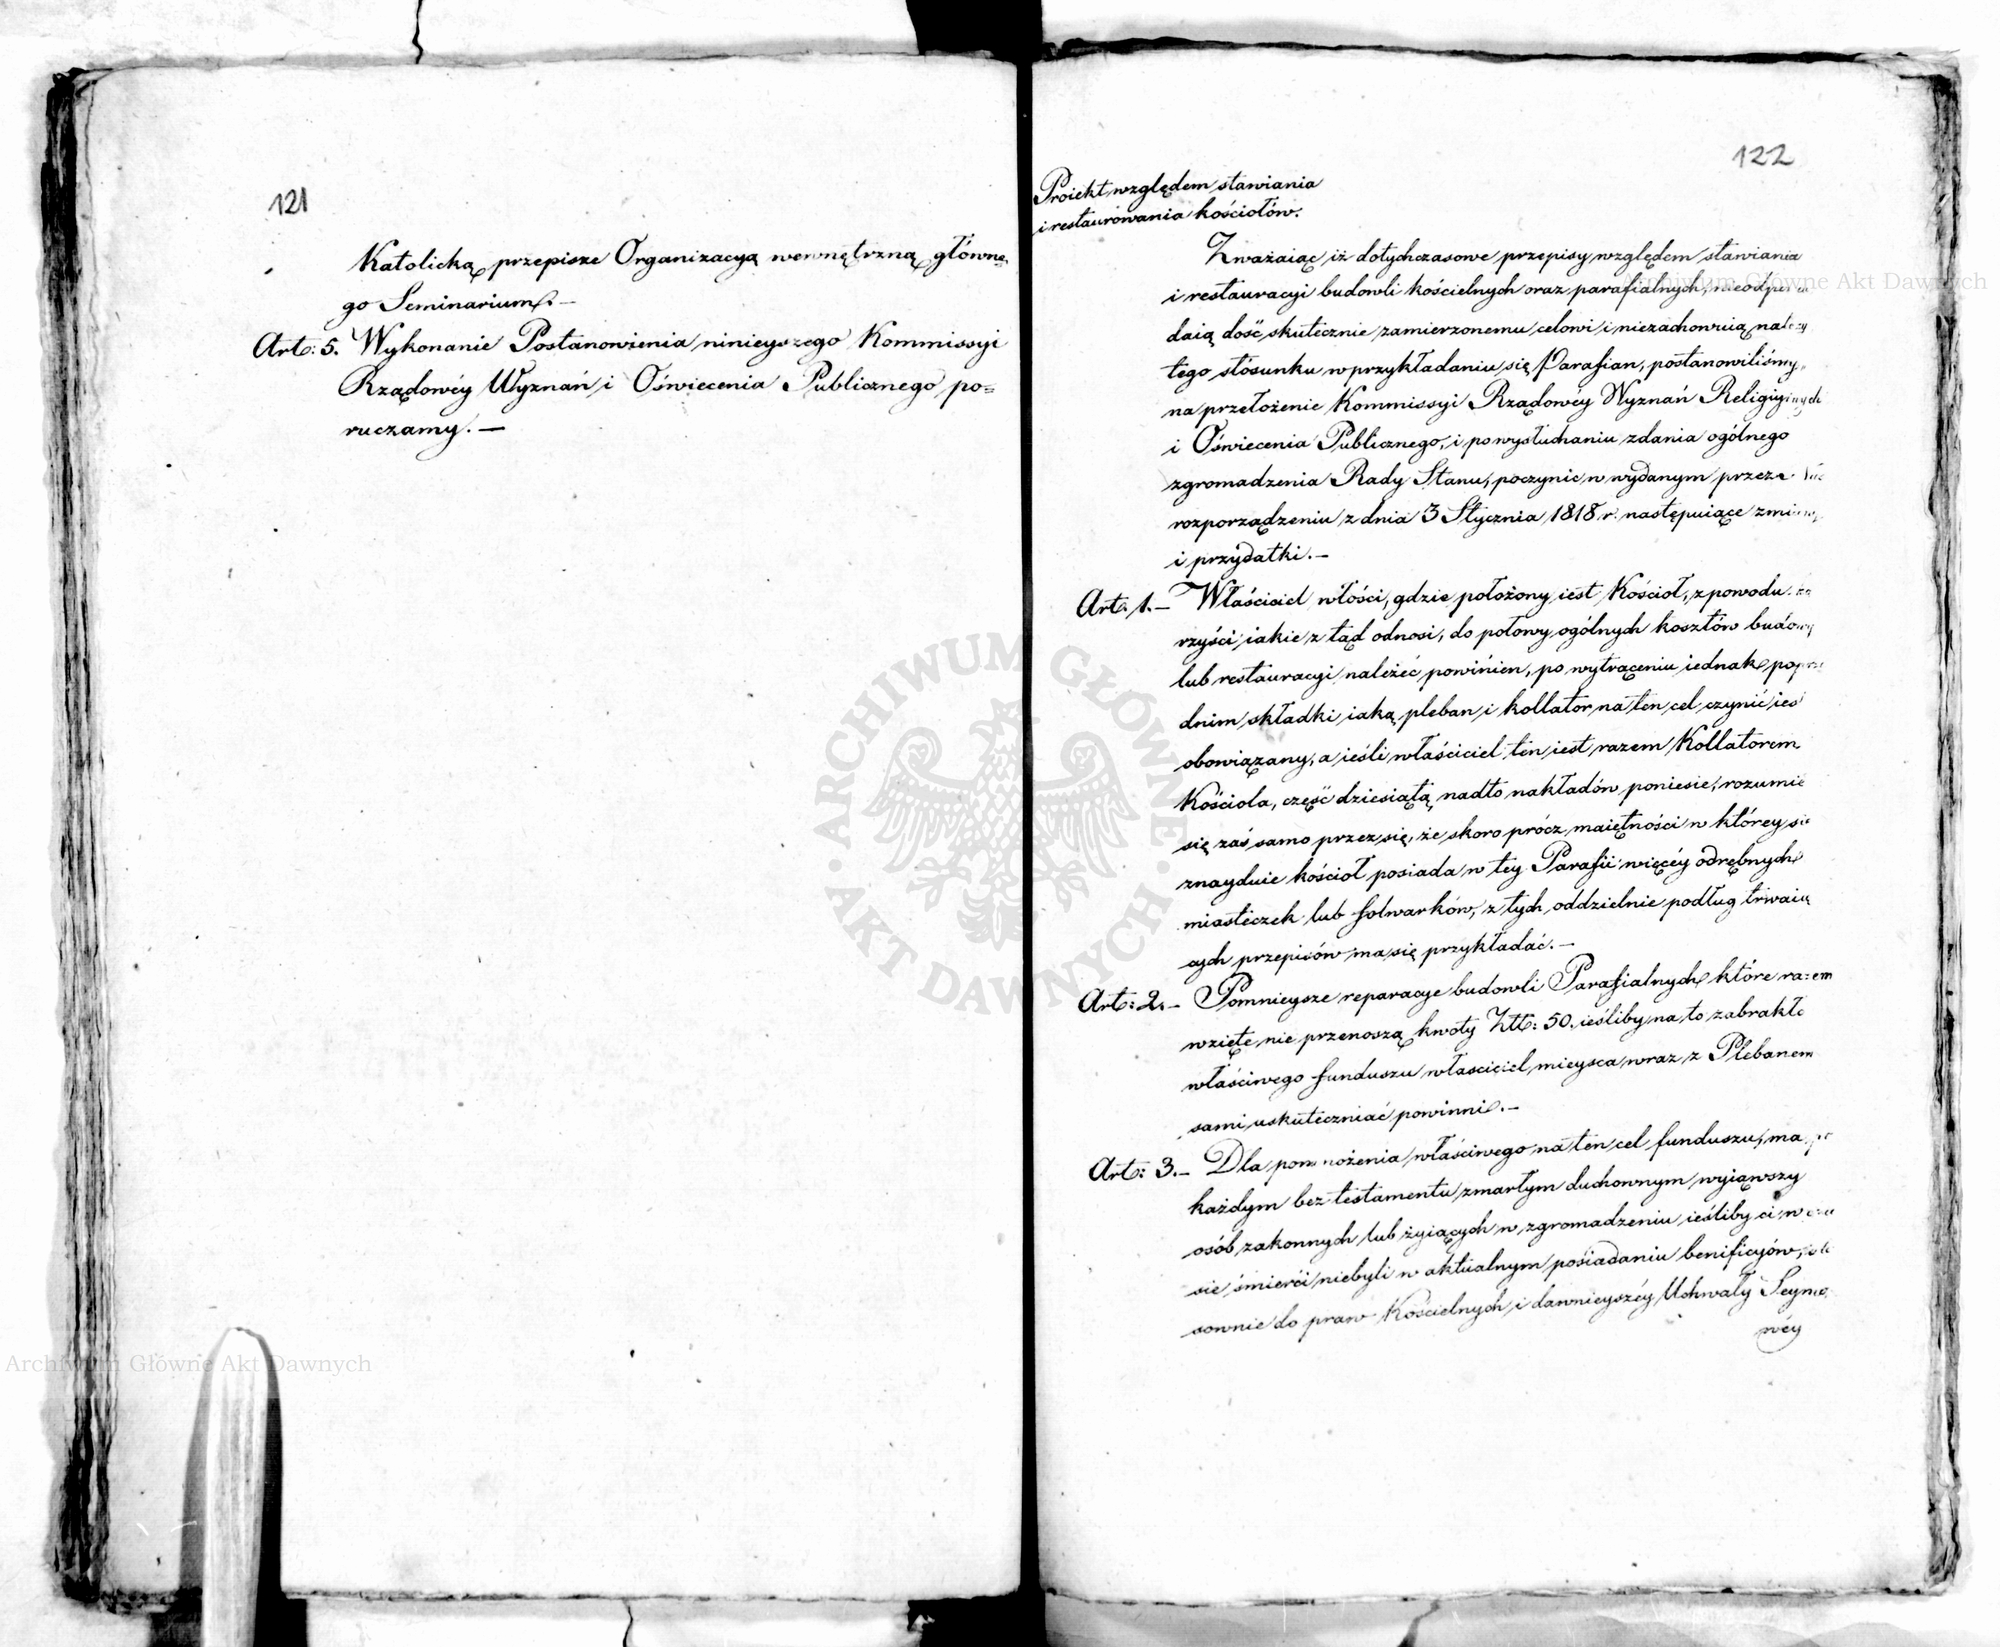 121
Katolicką przepisze Organizacyą wewnętrzną główne-
go Seminarium. –
Art: 5. Wykonanie Postanowienia ninieyszego Kommissyi
Rządowéy Wyznań i Oświecenia Publicznego po=
ruczamy. –
122
Proiekt względem stawiania
i restaurowania kościołów.
Zważaiąc iż dotychczasowe przepisy względem stawiania
i restauracyi budowli kościelnych oraz parafialnych,
daią dość skutecznie zamierzonemu celowi i niezachowuią
tego stósunku w przykładaniu się Parafian, postanowiliśmy
na przełożenie Kommissyi Rządowéy Wyznań Religiynych
i Oświecenia Publicznego, i po wysłuchaniu zdania ogólnego
zgromadzenia Rady Stanu, poczynić w wydanym przez
rozporządzeniu z dnia 3 Stycznia 1818 r. następuiące zmiany
i przydatki. –
Art: 1. – Właściciel włości, gdzie położony iest Kościoł, z powodu
rzyści iakie z tąd odnosi, do połowy ogólnych kosztów budowy
lub restauracyi należéć powinien, po wytrąceniu iednak
dnim składki iaką pleban i kollator na ten cel czynić ies
obowiązany, a ieśli właściciel ten iest razem Kollatorem
Kościoła, część dziesiątą nadto nakładów poniesie, rozumie
się zaś samo przez się, że skoro prócz maiętności w którey się
znayduie kościoł posiada w tey Parafii więcéy odrębnych
miasteczek lub folwarków, z tych oddzielnie podług trwaią
cych przepisów ma się przykładać. –
Art: 2. – Pomnieysze reparacye budowli Parafialnych które razem
wzięte nie przenoszą kwoty Złł: 50. ieśliby na to zabrakło
właściwego funduszu właściciel mieysca wraz z Plebanem
sami uskuteczniać powinni. –
Art: 3. – Dla pomnożenia właściwego na ten cel funduszu, ma
każdym bez testamentu zmarłym duchownym wyiąwszy
osób zakonnych lub żyiących w zgromadzeniu ieśliby ci w
sie śmierći niebyli w aktualnym posiadaniu benificyów,
sownie do praw Kościelnych i dawnieyszéy Uchwały Seymo
wéy
Archiwum Główne Akt Dawnych
Archiwum Główne Akt Dawnych
ARCHIWUM GŁÓWNE AKT DAWNYCH